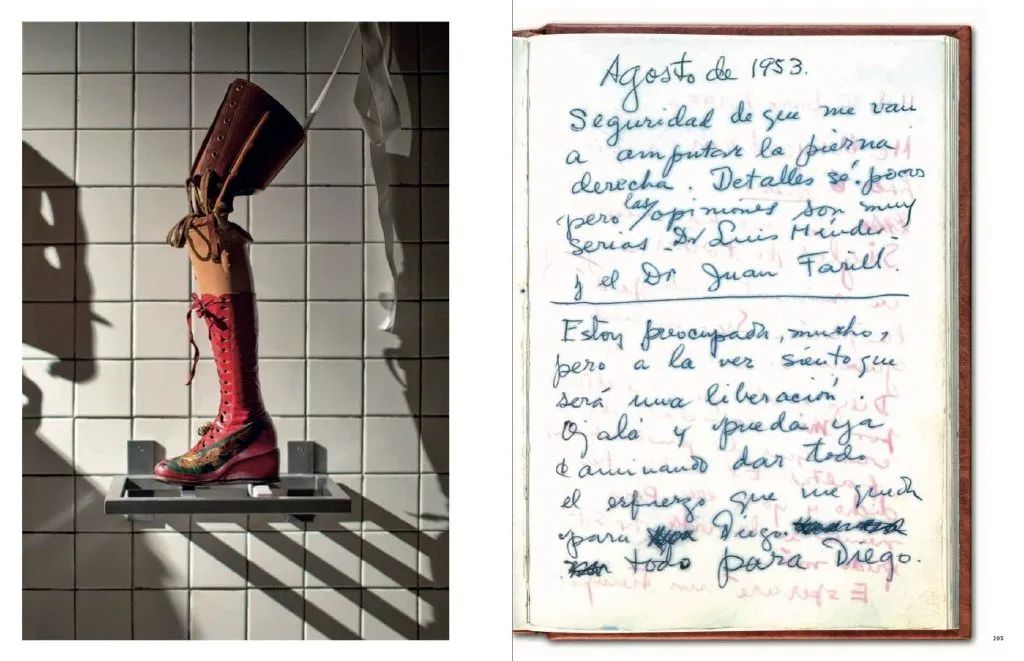 Agosto de 1953.
Seguridad de que me van
a amputar la pierna
derecha. Detalles sé pocos
pero las opiniones son muy
serias. Dr Luis Méndez
y el Dr Juan Farill.
Estoy preocupada, mucho,
pero a la vez siento que
será una liberación.
Ojalá y pueda ya
caminando dar todo
el esfuerzo que me queda
para Diego
todo para Diego.
Esperaré un tiempo
205